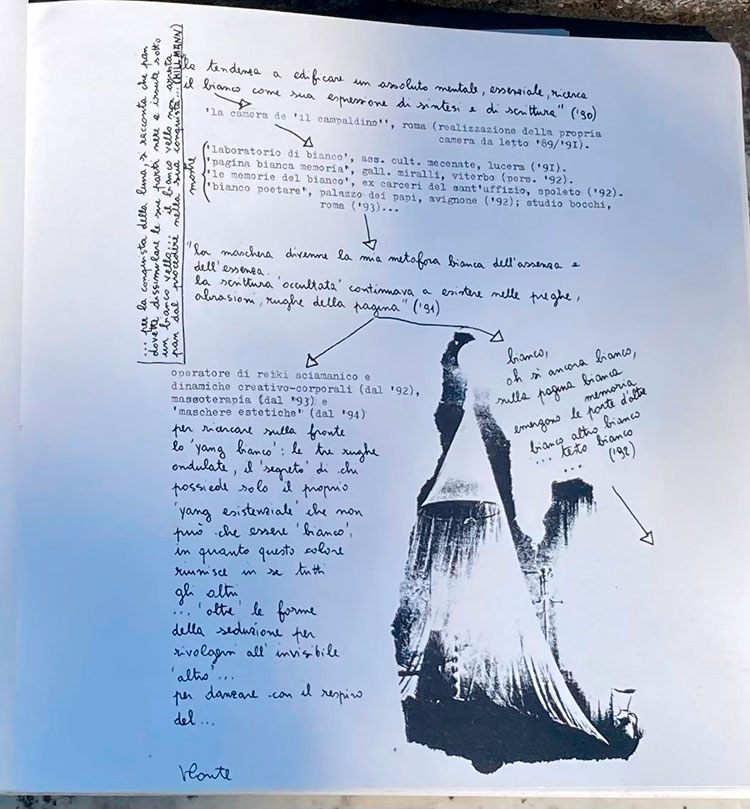 ... per la conquista della luna, si racconta che pan
dovette dissimulare le sue parti nere e irsute sotto
un bianco vello... il bianco vello non arresta
pan dal procedere nella sua conquista... (HILLMANN)
"la tendenza a edificare un assoluto mentale, essenziale, ricerca
il bianco come sua espressione di sintesi e di scrittura" ('90)
'la camera de 'il campaldino'', roma (realizzazione della propria
camera da letto '89/'91).
mostre
'laboratorio di bianco', ass. cult. mecenate, lucera ('91).
'pagina bianca memoria', gall. miralli, viterbo (pers. '92).
'le memorie del bianco', ex carceri del sant'uffizio, spoleto ('92).
'bianco poetare', palazzo dei papi, avignone ('92); studio bocchi,
roma ('93)...
"la maschera divenne la mia metafora bianca dell'assenza e
dell'essenza.
la scrittura 'occultata' continuava a esistere nelle preghe,
abrasioni, rughe della pagina" ('91)
operatore di reiki sciamanico e
dinamiche creativo-corporali (dal '92),
massoterapia (dal '93) e
'maschere estetiche' (dal '94)
per ricercare sulla fronte
lo 'yang bianco': le tre rughe
ondulate, il 'segreto' di chi
possiede solo il proprio
'yang esistenziale' che non
può che essere 'bianco',
in quanto questo colore
riunisce in se tutti
gli altri
... 'oltre' le forme
della seduzione per
rivolgersi all'invisibile
'altro'...
per danzare con il respiro
del...
bianco,
oh si ancora bianco,
sulla pagina bianca
memoria
emergono le porte d'altre
bianco altro bianco
... testo bianco
... ('92)